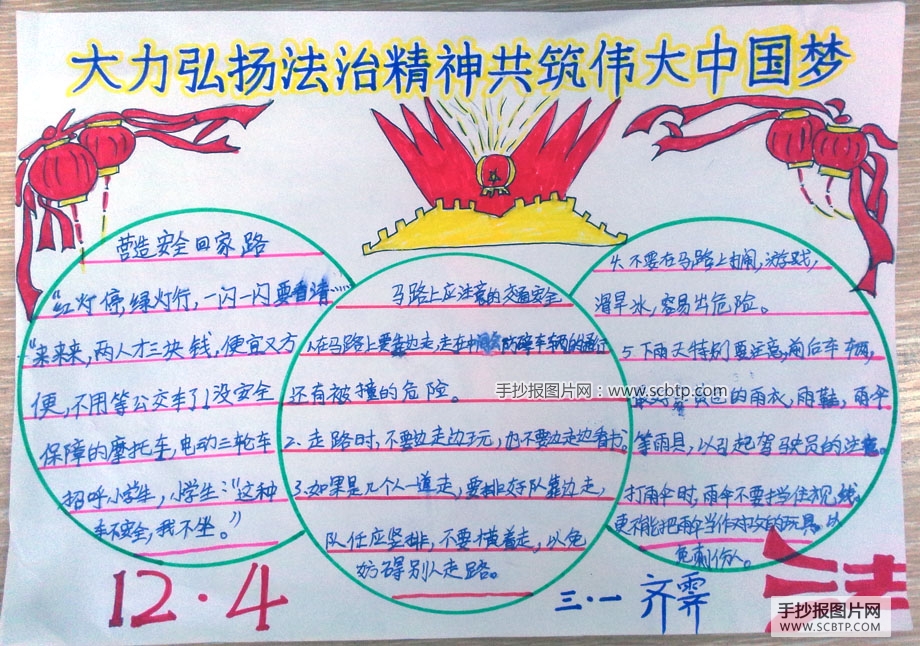 大力弘扬法治精神共筑伟大中国梦
营造安全回家路
“红灯停,绿灯行,一闪一闪要看清……
“来来来,两人才三块钱,便宜又方
便,不用等公交车了!没安全
保障的摩托车,电动三轮车
招呼小学生,小学生:“这种
车不安全,我不坐。”
马路上应注意的交通安全
1.在马路上要靠边走,走在中 妨碍车辆的通行
还有被撞的危险。
2、走路时,不要边走边玩,也不要边走边看书。
3.如果是几个人一道走,要排好队靠边走,
队任应竖排,不要横着走,以免
妨碍别人走路。
4、不要在马路上打闹,游戏,
滑旱冰,容易出危险。
5下雨天特别要注意,前后车辆,
色的雨衣,雨鞋,雨伞
等雨具,以引起驾驶员的注意。
打雨伞时,雨伞不要挡住视线,
更不能把雨伞当作对攻的玩具,以
免刺伤人。
12·4
三·一 齐霁
法
手抄报图片网:www.scbtp.com
手抄报图片网
WWW.SCBTP.COM